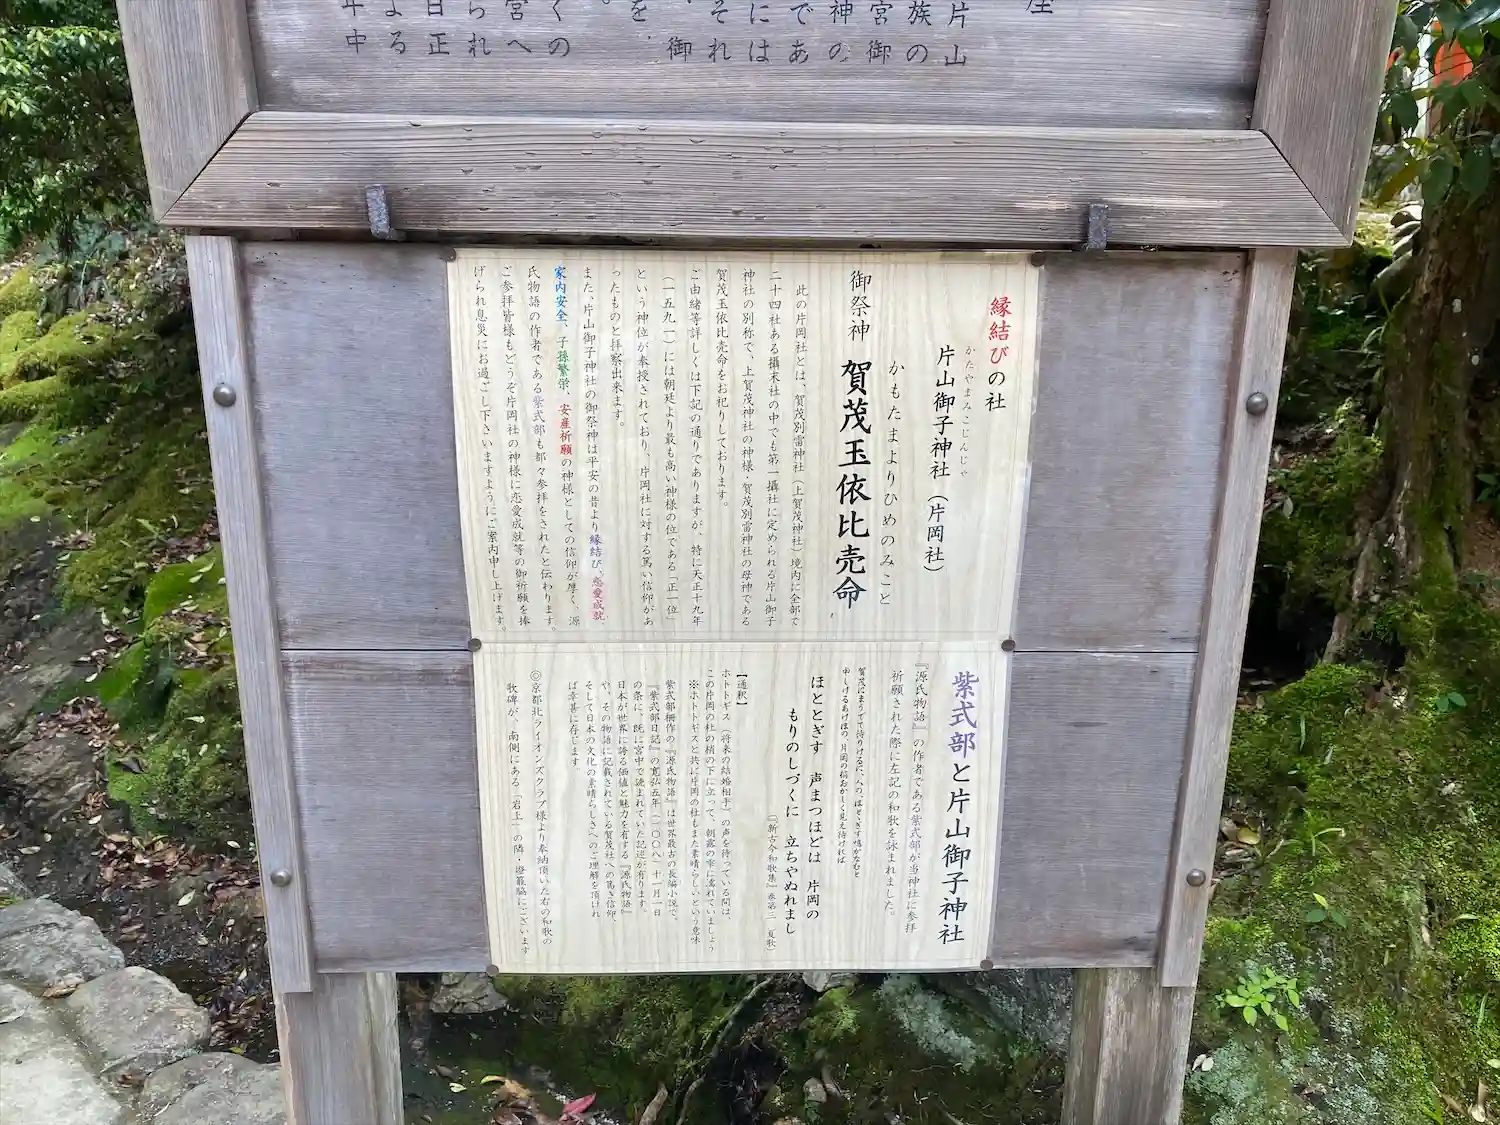 片山
族の
宮御
神の
であ
には
それ
御
を
くの
宮へ
られ
日正
よる
年中
縁結びの社
かたやまみこじんじゃ
片山御子神社（片岡社）
かもたまよりひめのみこと
御祭神 賀茂玉依比売命
此の片岡社とは、賀茂別雷神社（上賀茂神社）境内に全部で
二十四社ある摂末社の中でも第一摂社に定められる片山御子
神社の別称で、上賀茂神社の神様・賀茂別雷神社の母神である
賀茂玉依比売命をお祀りしております。
ご由緒等詳しくは下記の通りでありますが、特に天正十九年
（一五九一）には朝廷より最も高い神様の位である「正一位」
という神位が奉授されており、片岡社に対する篤い信仰があ
ったものと拝察出来ます。
また、片山御子神社の御祭神は平安の昔より縁結び、恋愛成就、
家内安全、子孫繁栄、安産祈願の神様としての信仰が厚く、源
氏物語の作者である紫式部も都々参拝をされたと伝わります。
ご参拝皆様もどうぞ片岡社の神様に恋愛成就等の御祈願を捧
げられ息災にお過ごし下さいますようにご案内申し上げます。
紫式部と片山御子神社
『源氏物語』の作者である紫式部が当神社に参拝
祈願された際に左記の和歌を詠まれました。
賀茂にまうでて侍りけるに、人の、ほとゝぎす鳴かなむと
申しけるあけぼの、片岡の梢おかしく見え侍ければ
ほととぎす 声まつほどは 片岡の
もりのしづくに 立ちやぬれまし
『新古今和歌集』巻第三（夏歌）
【通釈】
ホトトギス（将来の結婚相手）の声を待っている間は、
この片岡の社の梢の下に立って、朝露の雫に濡れていましょう
※ホトトギスと共に片岡の杜もまた素晴らしいという意味
紫式部作の『源氏物語』は世界最古の長編小説で、
『紫式部日記』の寛弘五年（一〇〇八）十一月一日
の条に、既に宮中で読まれていた記述が有ります。
日本が世界に誇る価値と魅力を有する『源氏物語』
や、その物語に記載されている賀茂社への篤き信仰、
そして日本の文化の素晴らしさへのご理解を頂けれ
ば幸甚に存じます。
◎京都北ライオンズクラブ様より奉納頂いた右の和歌の
歌碑が、南側にある「岩上」の隣・ 脇にございます